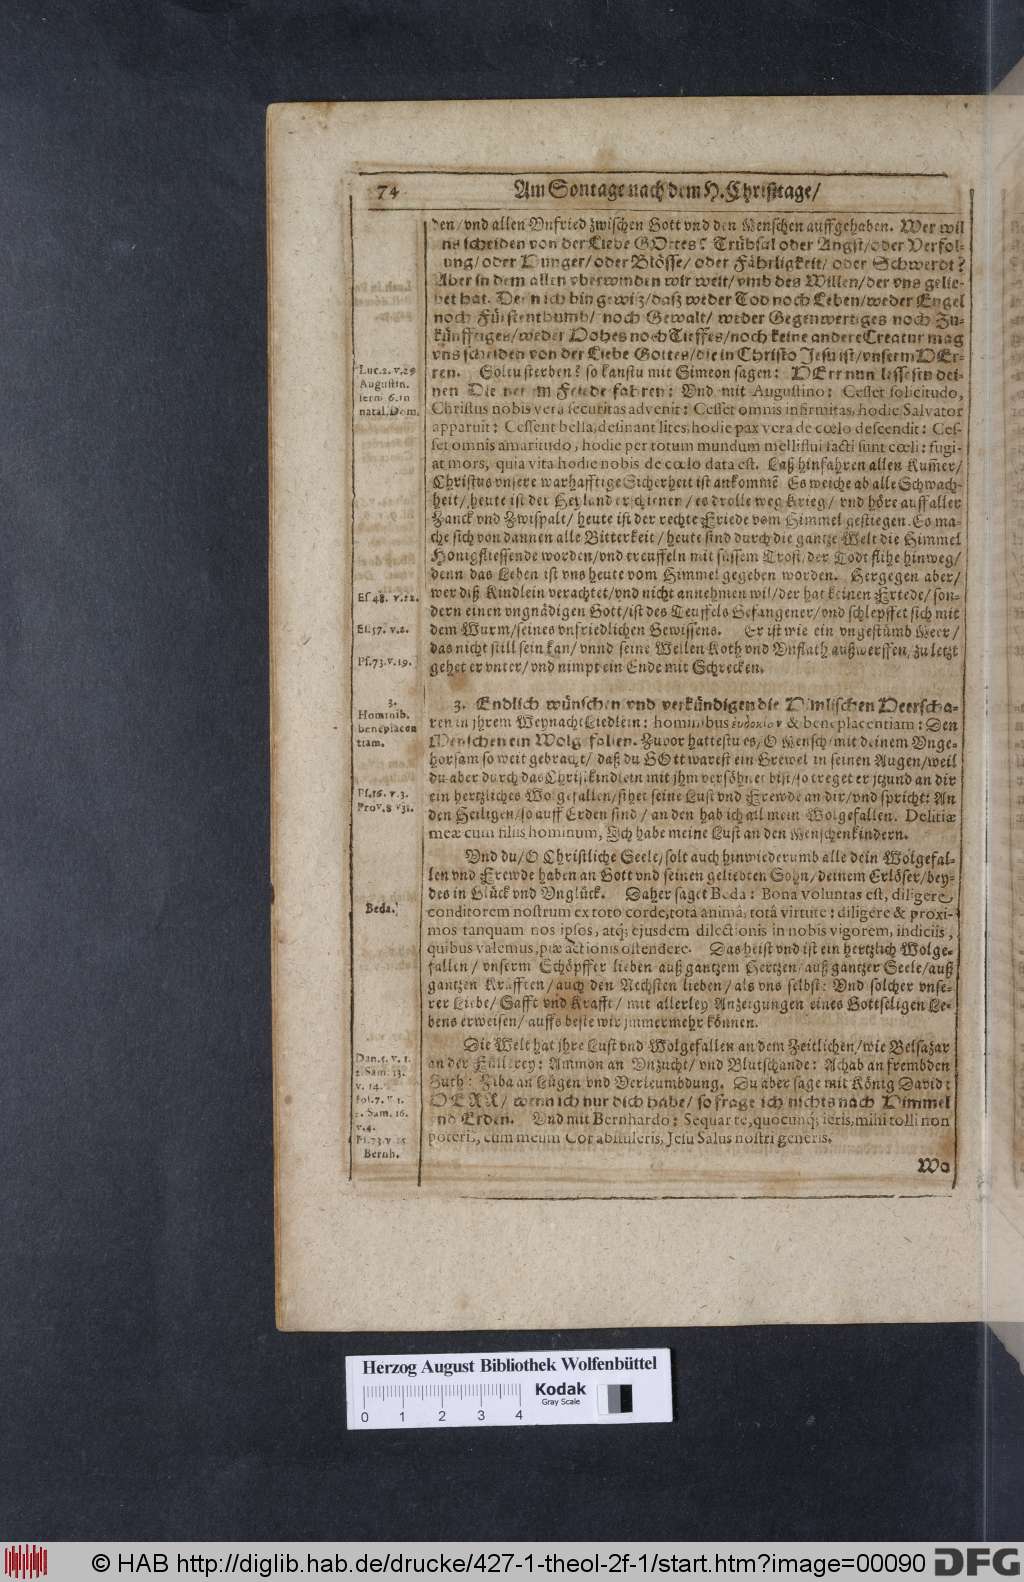 74 Am Sontage nach dem H. Christtage/
den/ vnd allen Vnfried zwischen Gott vnd den Menschen auffgehaben. Wer wil
ns scheiden von der Liebe GOttes? Trübsal oder Angst/ oder Verfol-
ung/ oder Hunger/ oder Blösse/ oder Fährligkeit/ oder Schwerdt?
Aber in dem allen vberwinden wir weit/ vmb des Willen/ der vns gelie-
bet hat. Denn ich bin gewiß/ daß weder Tod noch Leben/ weder Engel
noch Fürstenthumb/ noch Gewalt/ weder Gegenwertiges noch Zu-
künfftiges/ weder Hohes noch Tieffes/ noch keine andere Creatur mag
vns scheiden von der Liebe Gottes/ die in Christo Jesu ist/ vnserm HEr-
ren. Soltu sterben? so kanstu mit Simeon sagen: HErr nun lessestu dei-
nen Diener im Friede fahren: Vnd mit Augustino: Cesset solicitudo,
Christus nobis vera securitas advenit: Cesset omnis infirmitas, hodie Salvator
apparuit: Cessent bella, desinant lites, hodie pax vera de cœlo descendit: Ces-
set omnis amaritudo, hodie per totum mundum melliflui facti sunt cœli: fugi-
at mors, quia vita hodie nobis de cœlo data est. Laß hinfahren allen Kum̃er/
Christus vnsere warhafftige Sicherheit ist ankommẽ Es weiche ab alle Schwach-
heit/ heute ist der Heyland erschienen/ es drolle weg Krieg/ vnd höre auff aller
Zanck vnd Zwispalt/ heute ist der rechte Friede vom Himmel gestiegen. Es ma-
che sich von dannen alle Bitterkeit/ heute sind durch die gantze Welt die Himmel
Honigfliessende worden/ vnd treuffeln mit süssem Trost/ der Todt flihe hinweg/
denn das Leben ist vns heute vom Himmel gegeben worden. Hergegen aber/
wer diß Kindlein verachtet/ vnd nicht annehmen wil/ der hat keinen Friede/ son-
dern einen vngnädigen Gott/ ist des Teuffels Gefangener/ vnd schlepffet sich mit
dem Wurm/ seines vnfriedlichen Gewissens. Er ist wie ein vngestümb Meer/
das nicht still sein kan/ vnnd seine Wellen Koth vnd Vnflath außwerffen, zu letzt
gehet er vnter/ vnd nimpt ein Ende mit Schrecken.
3. Endlich wünschen vnd verkündigen die Himlischen Heerscha-
ren in jhrem Weynacht Liedlein: hominibus & beneplacentiam: Den
Menschen ein Wolgefallen. Zuvor hattestu es/ O Mensch/ mit deinem Vnge-
horsam so weit gebracht/ daß du GOtt warest ein Grewel in seinen Augen/ weil
du aber durch das Christkindlein mit jhm versöhnet bist/ so treget er jtzund an dir
ein hertzliches Wolgefallen/ sihet seine Lust vnd Frewde an dir/ vnd spricht: An
den Heiligen/ so auff Erden sind/ an den hab ich all mein Wolgefallen. Delitiæ
meæ cum filiis hominum, Ich habe meine Lust an den Menschenkindern.
Vnd du/ O Christliche Seele/ solt auch hinwiederumb alle dein Wolgefal-
len vnd Frewde haben an Gott vnd seinen geliebten Sohn/ deinem Erlöser/ bey-
des in Glück vnd Vnglück. Daher saget Beda: Bona voluntas est, diligere
conditorem nostrum ex toto corde, tota animâ, totâ virtute: diligere & proxi-
mos tanquam nos ipsos, atq; ejusdem dilectionis in nobis vigorem, indiciis,
quibus valemus, piæ actionis ostendere. Das heist vnd ist ein hertzlich Wolge-
fallen/ vnserm Schöpffer lieben auß gantzem Hertzen/ auß gantzer Seele/ auß
gantzen Krafften/ auch den Nechsten lieben/ als vns selbst: Vnd solcher vnse-
rer Liebe/ Safft vnd Krafft/ mit allerley Anzeigungen eines Gottseligen Le-
bens erweisen/ auffs beste wir jmmermehr können.
Die Welt hat jhre Lust vnd Wolgefallen an dem Zeitlichen/ wie Belsazar
an der Füllerey: Ammon an Vnzucht/ vnd Blutschande: Achab an frembden
Guth: Ziba an Lügen vnd Verleumbdung. Du aber sage mit König David:
HERR/ wenn ich nur dich habe/ so frage ich nichts nach Himmel
nd Erden. Vnd mit Bernhardo: Sequar te, quocunq; ieris, mihi tolli non
poteris, cum meum Cor abstuleris, Jesu Salus nostri generis.
Wo
Luc. 2. v. 29
Augustin.
serm. 6. in
natal. Dom.
Es. 48. v. 22.
Es. 57. v. 2.
Ps. 73. v. 19.
3.
Hominib.
beneplacen
tiam.
Ps. 16. v. 3.
Prov. 8 v 31.
Beda.
Dan. 5. v. 1.
2. Sam. 13.
v. 14.
v. 1.
2. Sam. 16.
v. 4.
Ps. 73. v. 25
Bernh.
Herzog August Bibliothek Wolfenbüttel
Kodak
Gray Scale
0 1 2 3 4
© HAB http://diglib.hab.de/drucke/427-1-theol-2f-1/start.htm?image=00090 DFG